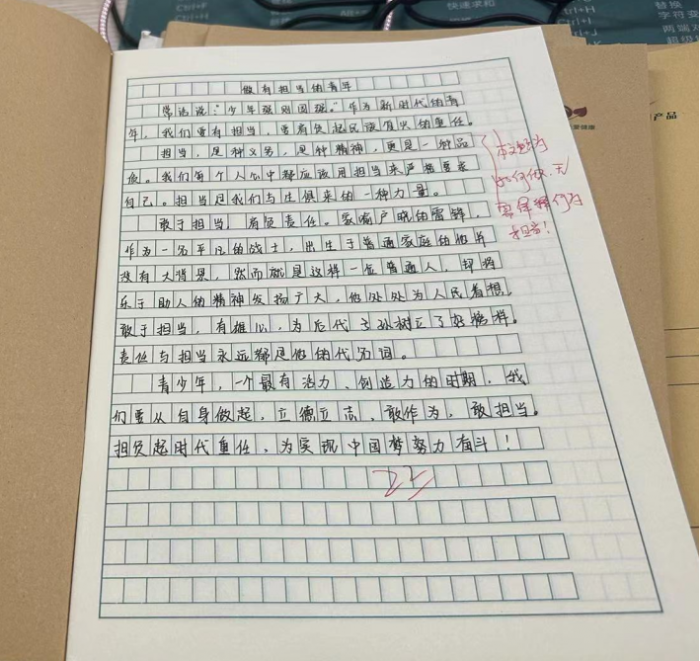 Ctrl+F
Ctrl+H
Ctrl+I
Alt+
快速求和
替换
字符
两端对
产品
做有担当的青年
常话说:“少年强则国强。”作为新时代的青
年,我们要有担当,要肩负起民族复兴的重任。
担当,是种义务,是种精神,更是一种品
质。我们每个人心中都应该用担当来严格要求
自己。担当是我们与生俱来的一种力量。
敢于担当,肩负责任。家喻户晓的雷锋,
作为一名平凡的战士,出生于普通家庭的他并
没有大背景,然而就是这样一位普通人,却将
乐于助人的精神发扬广大,他处处为人民着想,
敢于担当,有雄心,为后代子孙树立了好榜样。
责任与担当永远都是他的代名词。
青少年,一个最有活力、创造力的时期,我
们要从自身做起,立德立志、敢作为,敢担当。
担负起时代重任,为实现中国梦努力奋斗!
本文题为
如何做,无
需解释何为
担当!